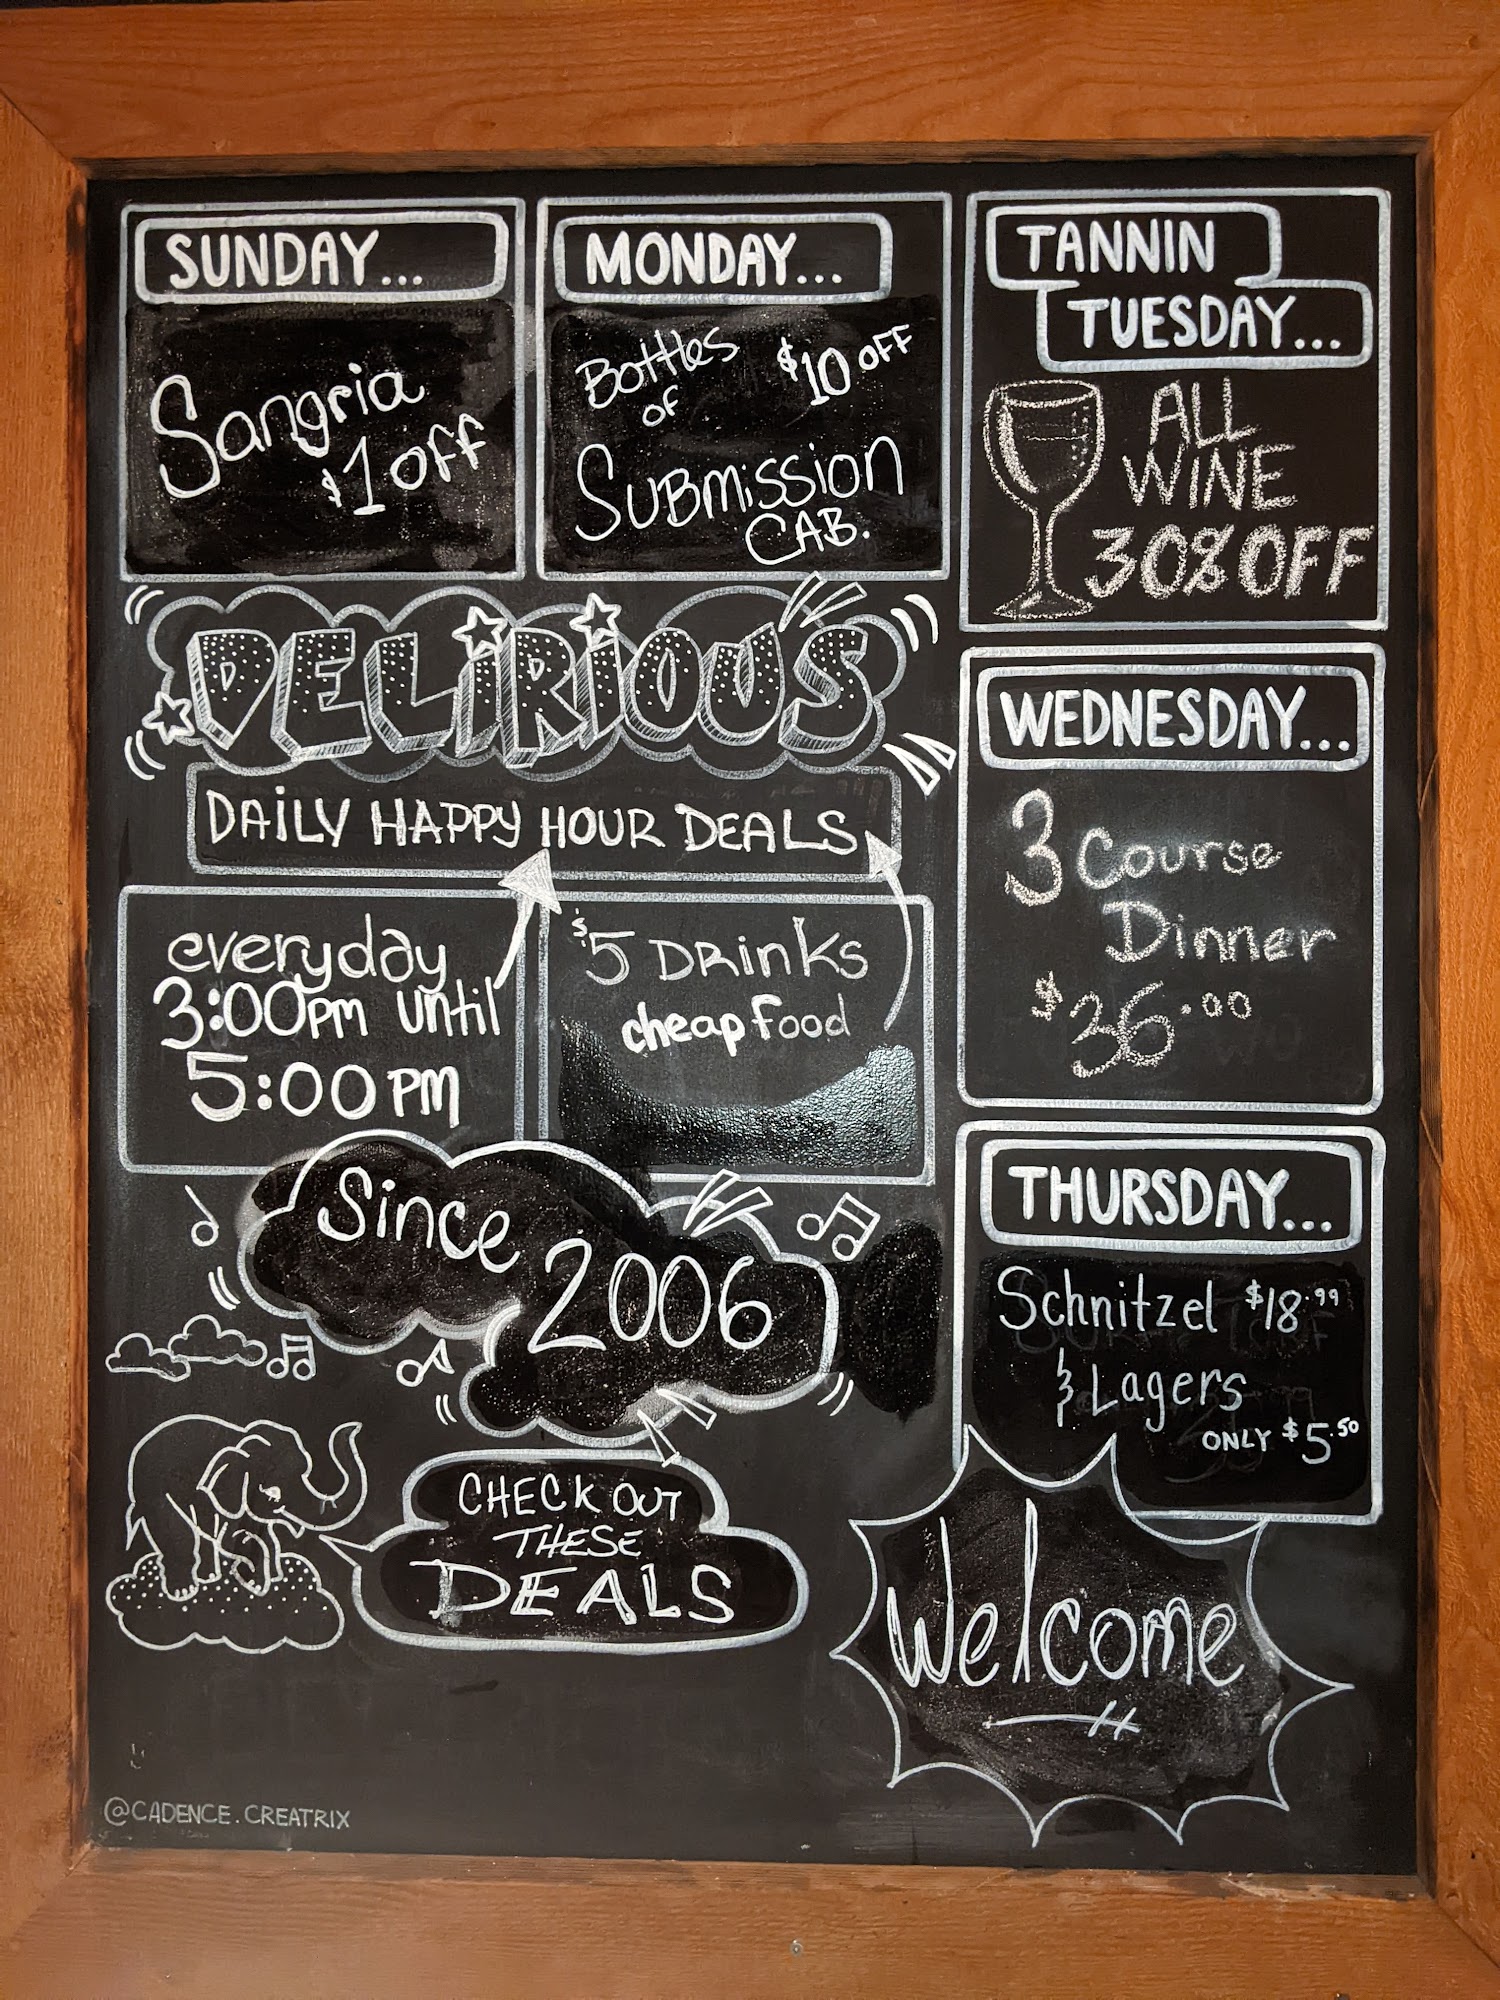 SUNDAY...
Sangria
$1 off
MONDAY...
Bottles $10 OFF
of
Submission
CAB.
TANNIN
TUESDAY...
ALL
WINE
30% OFF
DELIRIOUS
DAILY HAPPY HOUR DEALS
everyday
3:00pm until
5:00 PM
$5 DRinks
cheap food
WEDNESDAY...
3 Course
Dinner
$36.00
THURSDAY...
Schnitzel $18.99
& Lagers
ONLY $5.50
Since
2006
CHECK OUT
THESE
DEALS
Welcome
@CADENCE.CREATRIX